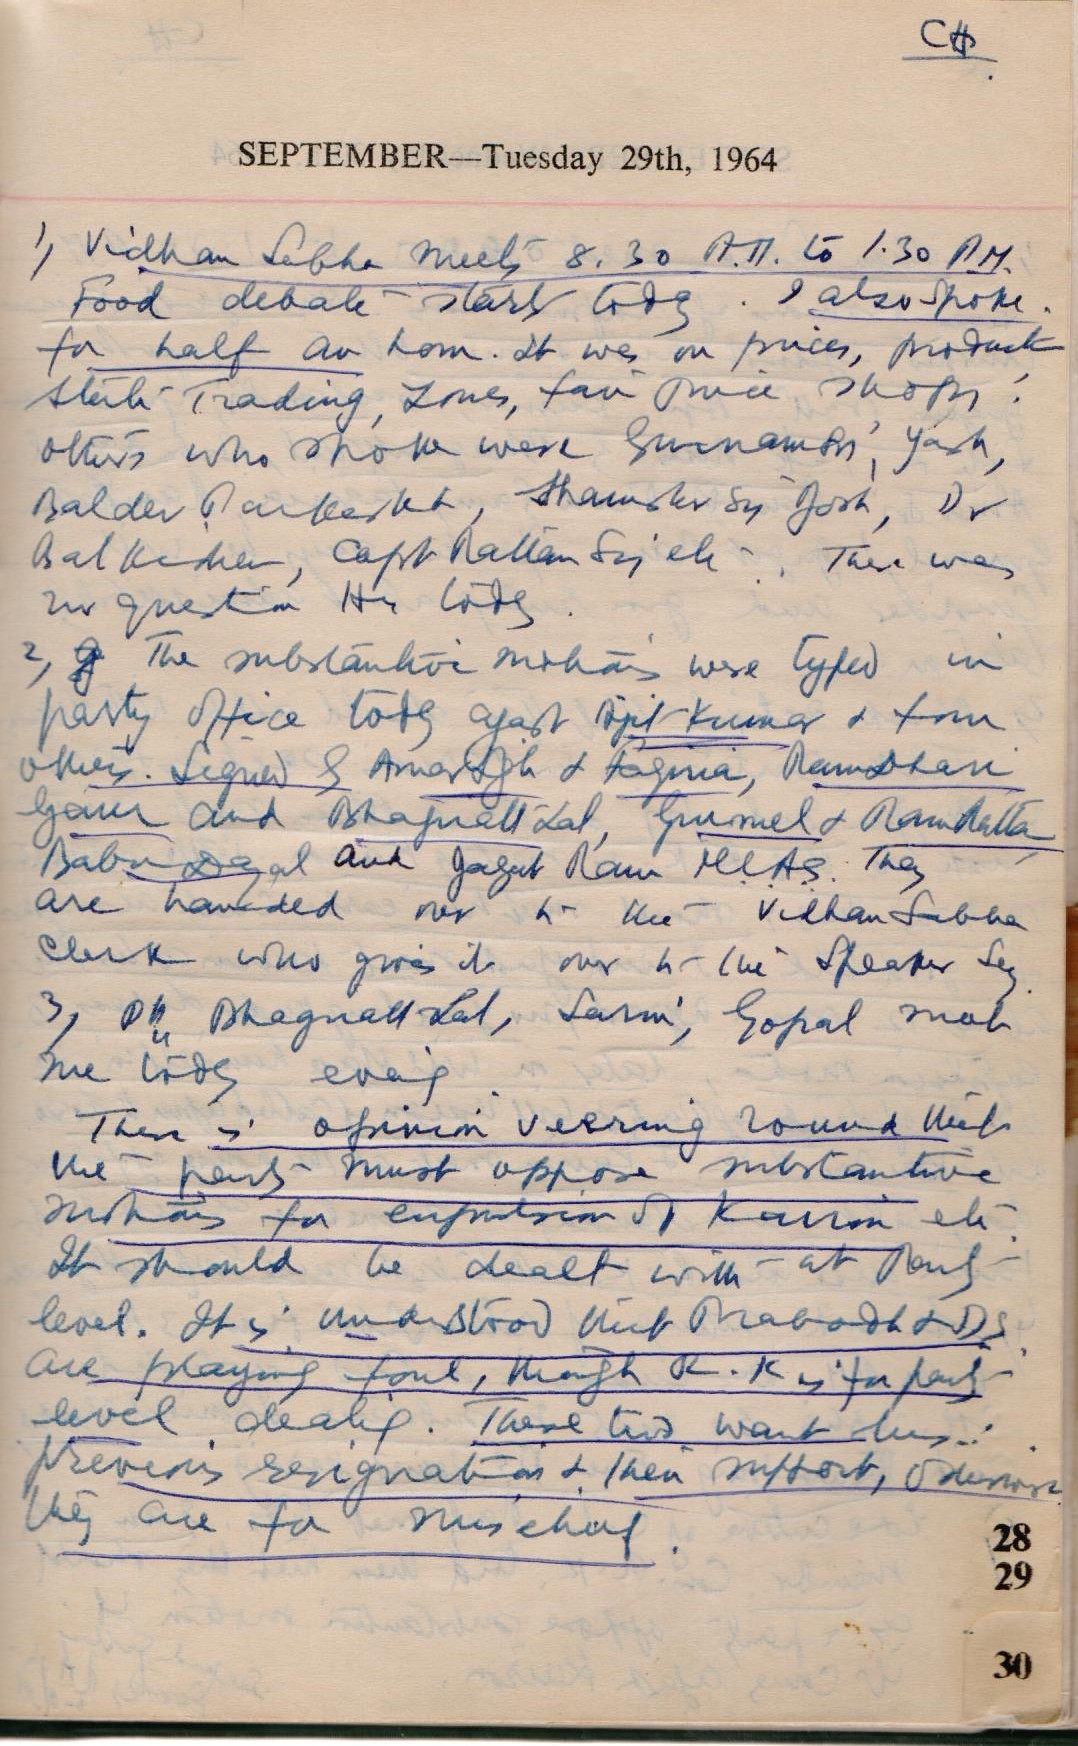 CH
SEPTEMBER—Tuesday 29th, 1964
1, Vidhan Sabha meets 8.30 A.M. to 1.30 P.M.
Food debate starts today. I also spoke
for half an hour. It was on prices, product
State Trading, Zones, fair price shops.
others who spoke were Gurnam Si, Yash,
Baldev Parkash, Shamsher Si Josh, Dr
Bal Kishen, Capt Rattan Si etc. There was
no question Hr today.
2, The substantive motions were typed in
party office today agast Ajit Kumar & four
others. Signed by Amar Sgh & Fagiria, Ram Dhari
Gaur and Bhagwatt Lal, Gurmel & Ram Rattan
Babu Dayal and Jagat Ram M.L.As. They
are handed over to the Vidhan Sabha
Clerk who gives it over to the Speaker Secy
3, Pt Bhagwatt Lal, Sarin, Gopal met
me today evenig.
There is opinion veering round that
the party must oppose substantive
motions for expulsion of Kairon etc.
It should be dealt with at Party
level. It is understood that Prabodh & DS
are playing foul, though R.K is for party
level dealig. These two want his
previous resignations & then support, otherwise
they are for mischief.
28
29
30